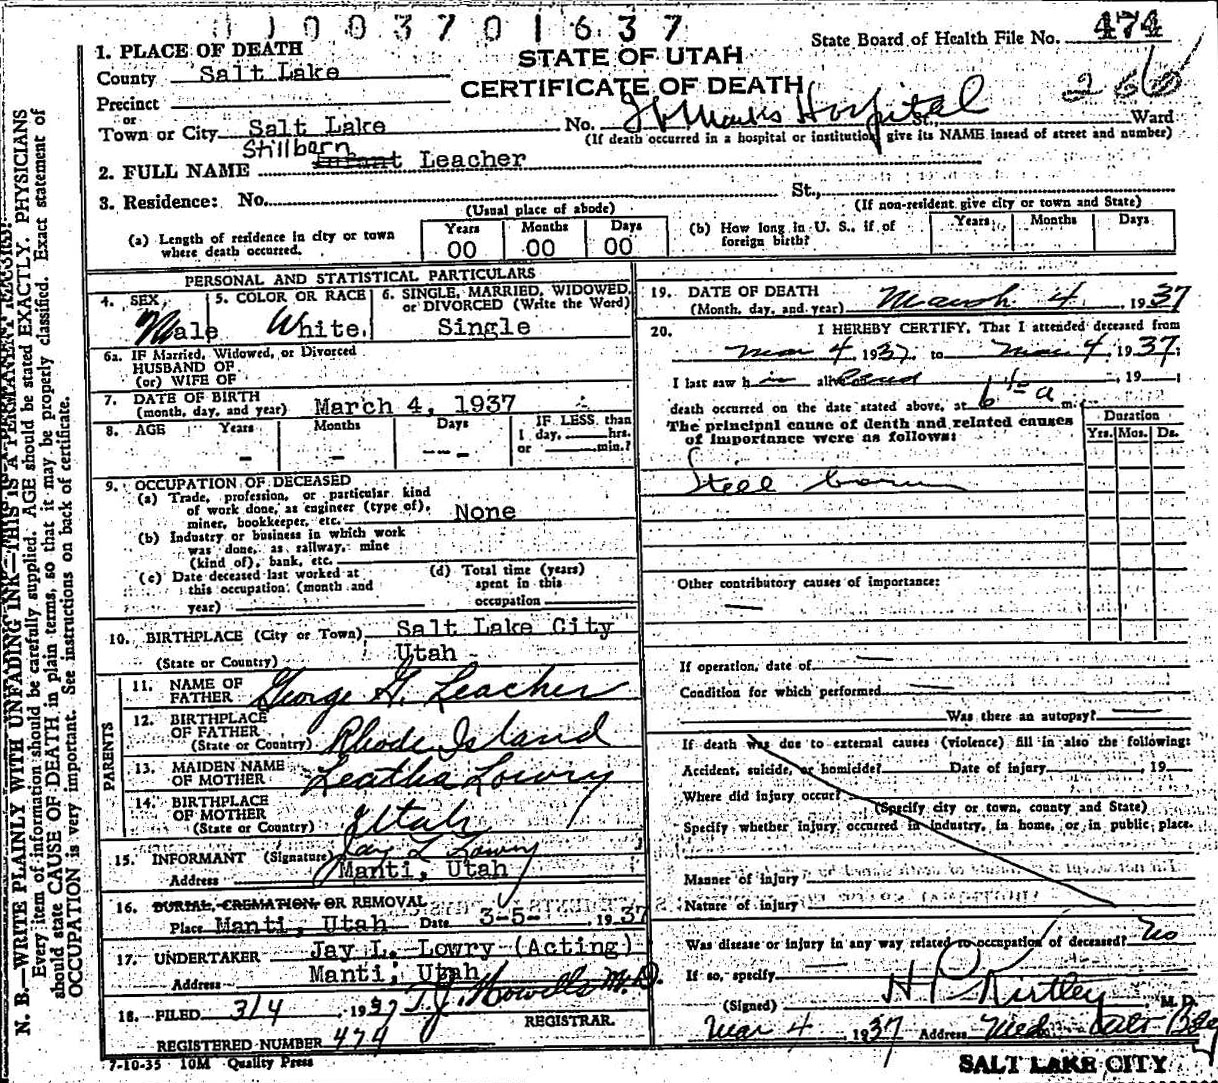 0 1 0 0 3 7 0 1 6 3 7
State Board of Health File No. 474
266
STATE OF UTAH
CERTIFICATE OF DEATH
1. PLACE OF DEATH
County Salt Lake
Precinct
or
Town or City Salt Lake No. St Marks Hospital St., Ward
(If death occurred in a hospital or institution, give its NAME insead of street and number)
Stillborn
2. FULL NAME Infant Leacher
3. Residence: No. St.,
(Usual place of abode) (If non-resident give city or town and State)
(a) Length of residence in city or town where death occurred. Years 00 Months 00 Days 00
(b) How long in U. S., if of foreign birth? Years Months Days
PERSONAL AND STATISTICAL PARTICULARS
4. SEX Male
5. COLOR OR RACE White
6. SINGLE, MARRIED, WIDOWED, or DIVORCED (Write the Word) Single
6a. IF Married, Widowed, or Divorced
HUSBAND OF
(or) WIFE OF
7. DATE OF BIRTH
(month, day, and year) March 4, 1937
8. AGE Years - Months - Days ---
IF LESS than
1 day, hrs.
or min.?
9. OCCUPATION OF DECEASED
(a) Trade, profession, or particular kind
of work done, as engineer (type of),
miner, bookkeeper, etc. None
(b) Industry or business in which work
was done, as railway, mine
(kind of), bank, etc.
(c) Date deceased last worked at
this occupation, (month and
year)
(d) Total time (years)
spent in this
occupation
10. BIRTHPLACE (City or Town) Salt Lake City
(State or Country) Utah
PARENTS
11. NAME OF FATHER George G. Leacher
12. BIRTHPLACE OF FATHER
(State or Country) Rhode Island
13. MAIDEN NAME OF MOTHER Leatha Lowry
14. BIRTHPLACE OF MOTHER
(State or Country) Utah
15. INFORMANT (Signature) Jay L Lowry
Address Manti, Utah
16. BURIAL, CREMATION, OR REMOVAL
Place Manti, Utah Date 3-5- 1937
17. UNDERTAKER Jay L. Lowry (Acting)
Address Manti, Utah
18. FILED 3/4 1937 T. J. Howells M.D.
REGISTRAR.
REGISTERED NUMBER 474
7-10-35 10M Quality Press
19. DATE OF DEATH
(Month, day, and year) March 4, 1937
20. I HEREBY CERTIFY, That I attended deceased from
Mar 4, 1937, to Mar 4, 1937;
I last saw h alive , 19 ;
death occurred on the date stated above, at 6 a m.
The principal cause of death and related causes
of importance were as follows:
Duration
Yrs. Mos. Ds.
Still born
Other contributory causes of importance:
If operation, date of
Condition for which performed
Was there an autopsy?
If death was due to external causes (violence) fill in also the following:
Accident, suicide, or homicide? Date of injury 19
Where did injury occur?
(Specify city or town, county and State)
Specify whether injury occurred in industry, in home, or in public place.
Manner of injury
Nature of injury
Was disease or injury in any way related to occupation of deceased? No
If so, specify
(Signed) H P Kirtley M.D.
Mar 4 1937 Address Med
SALT LAKE CITY
N. B.—WRITE PLAINLY WITH UNFADING INK—THIS IS A PERMANENT RECORD.
Every item of information should be carefully supplied. AGE should be stated EXACTLY. PHYSICIANS
should state CAUSE OF DEATH in plain terms, so that it may be properly classified. Exact statement of
OCCUPATION is very important. See instructions on back of certificate.